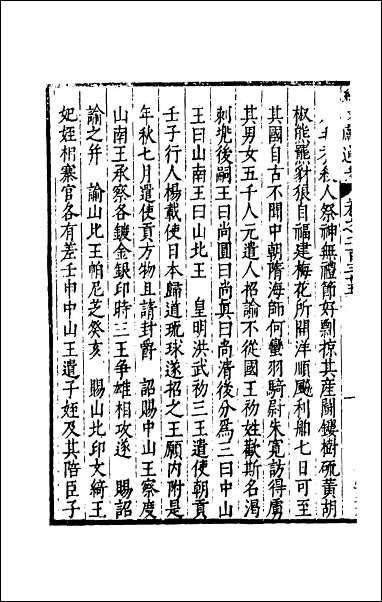 人祭神無禮節好剽掠其産鬪鏤樹硫黄胡
椒熊羆豺狼自福建梅花所開洋順颷利船七日可至
其國自古不聞中朝隋海師何蠻羽騎尉朱寛訪得虜
其男女五千人元遣人招諭不從國王初姓歡斯名渴
刺兠後嗣王曰尚圓曰尚真曰尚清後分為三曰中山
王曰山南王曰山北王 皇明洪武初三王遣使朝貢
壬子行人楊載使日本歸道琉球遂招之王願内附是
年秋七月遣使貢方物且請封爵 詔賜中山王察度
山南王承察各鍍金銀印時三王争雄相攻遂 賜詔
諭之并 諭山北王帕尼芝癸亥 賜山北印文綺王
妃姪相寨官各有差壬申中山王遣子姪及其陪臣子